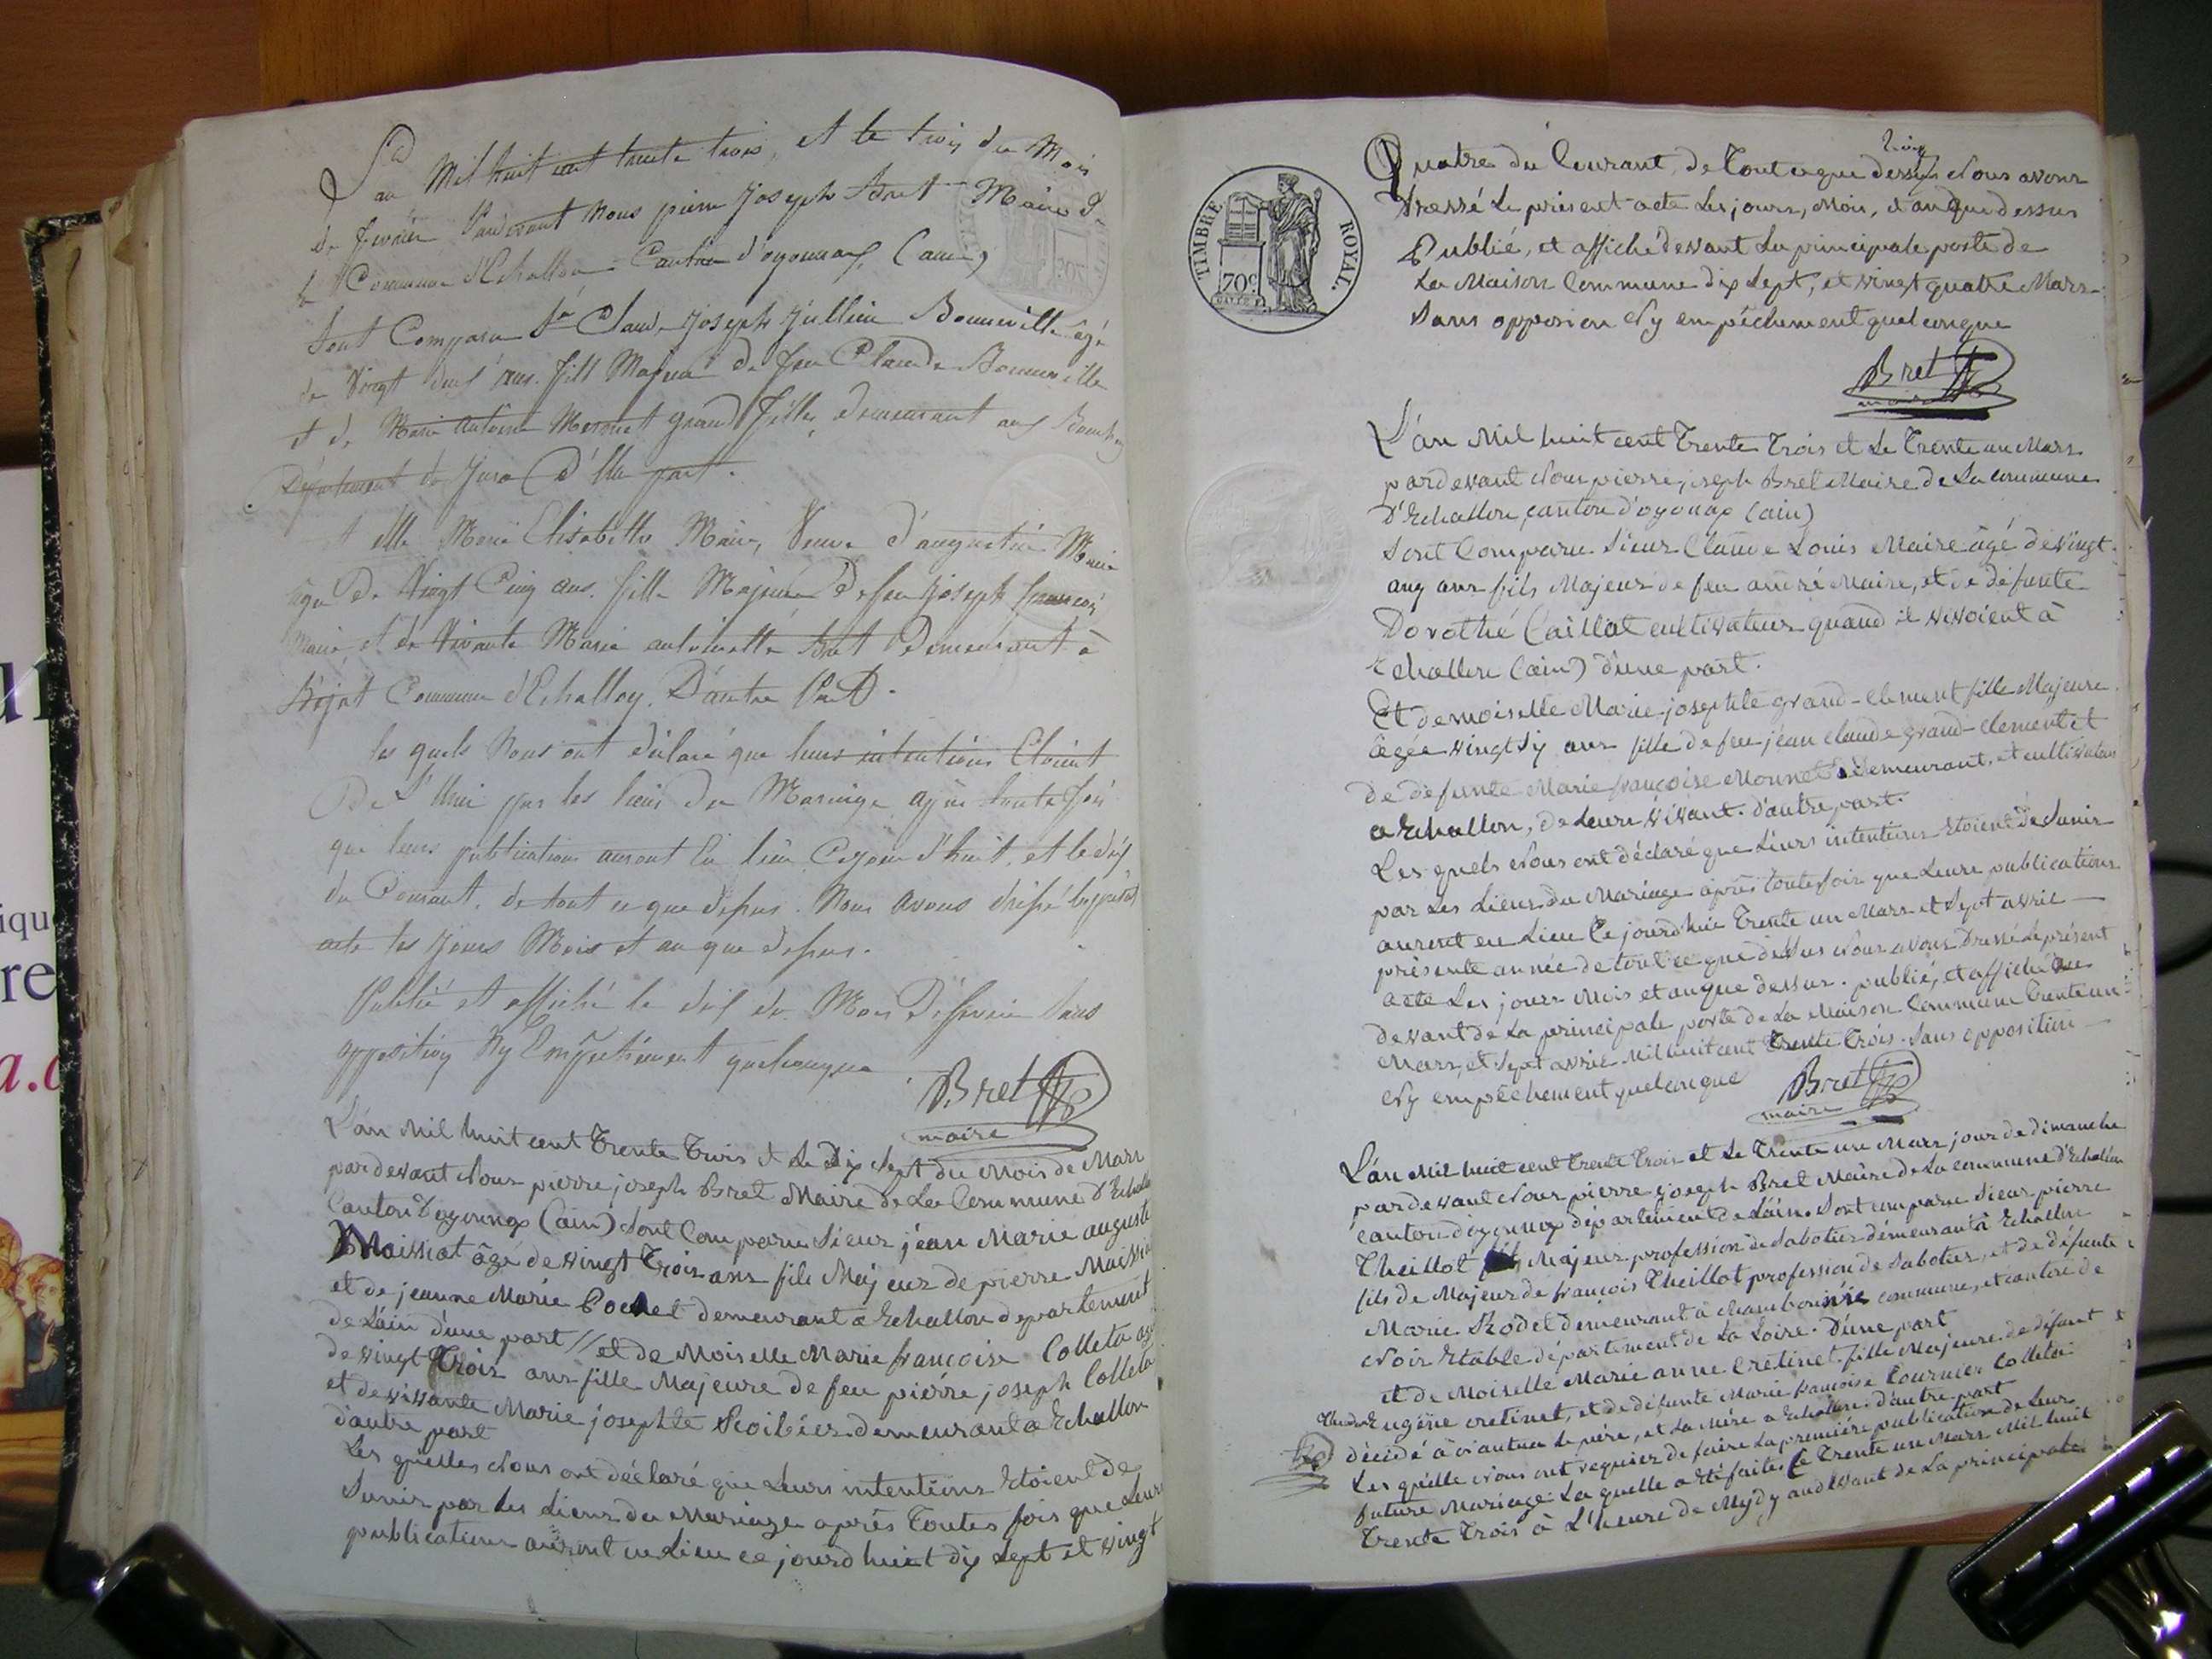 L'an Mil huit cent trente trois, et le trois du Mois
de fevrier Pardevant Nous pierre Joseph Bret Maire de
la Commune d'Echallon Canton d'oyonnax (ain)
Sont Comparu Sr Claude Joseph Jullien Bonneville âgé
de Vingt ans. fils Majeur de feu Claude Bonneville
et de Marie Antoine Mermet grand demeurant aux
Département du Jura D'Une part.
et elle Marie Elisabeth Maire, Veuve d'augustin Maire
âgée De Vingt Cinq ans. fille Majeure De feu Joseph françois
Maire et de Vivante Marie antoinette Bret Demeurant à
Commune d'Echallon, D'autre Part.
les quels Nous ont déclaré que leurs intentions Etoient
De S'Unir par les liens Du Mariage après toute fois
que leurs publications auront Eu lieu Cejour d'huit, et le dix
du Courant. de tout ce que dessus. Nous avons dressé le présent
acte les Jours Mois et an que dessus.
Publié et affiché le dix du Mois De fevrier Sans
opposition Ny Empêchement quelconque
Bret
maire
L'an Mil huit cent Trente Trois et Le Dix Sept du Mois de Mars
pardevant Nous pierre joseph Bret Maire de La Commune d'Echallon
Canton D'oyonnax (ain) Sont Comparu Sieur jéan Marie auguste
Maissiat âgé de vingt Trois ans fils Majeur de pierre Maissiat
et de jeanne Marie Pochet demeurant a Echallon departement
de L'ain d'une part // et de Moiselle Marie francoise Colleta
de vingt Trois ans fille Majeure de feu piérre joseph Colleta
et de vivante Marie josephte demeurant a Echallon
d'autre part
Les quelles Nous ont déclaré que Leurs intentions Etoient de
Sunir par les Liens du Mariage aprés Toutes fois que Leurs
publications auront eu Lieu ce jourd huit dix Sept et vingt
TIMBRE ROYAL.
70c
Quatre du Courant, de Tout ce que dessus Nous avons
Dressé Le présent acte Les jours, Mois, et an que dessus
Publié, et affiché devant La principale porte de
La Maison Commune dix Sept, et vingt quatre Mars
Sans opposion Ny empêchement quelconque
Bret
maire
L'an Mil huit cent Trente Trois et Le Trente un Mars
pardevant Nous pierre joseph Bret Maire de La commune
D'Echallon canton d'oyonax (ain)
Sont Comparu Sieur Claude Louis Maire âgé de vingt
ans fils Majeur de feu Maire, et de défunte
Dorothé Caillat cultivateur quand il vivoient à
Echallon (ain) d'une part.
Et demoiselle Marie josephte grand-clement fille Majeure
âgée vingt Six ans fille de feu jéan claude grand-clement et
De défunte Marie françoise Monnet demeurant, et cultivateur
a Echallon, de Leure vivant. d'autre part.
Les quels Nous ont déclaré que Leurs intentions Etoient de Sunir
par Les Liens du Mariage après Toutefois que Leure publications
auront eu Lieu Ce jourd huit Trente un Mars et Sept avril
présente année de tout ce que dessus Nous avons Dressé Le présent
acte Les jours Mois et an que dessus. publié, et affiché au
devant de La principale porte de La Maison Commune Trente un
Mars, et Sept avril Mil huit cent Trente Trois. Sans opposition
Ny empêchement quelconque
Bret
maire
L'an Mil huit cent Trente Trois et Le Trente un Mars jour de dimanche
pardevant Nous pierre joseph Bret Maire de La commune d'Echallon
canton d'oyonnax département de L'ain. Sont comparu Sieur pierre
Theillot Majeur profession de Sabotier démeurant à Echallon
fils de Majeur de francois Theillot profession de Sabotier, et de défunte
Marie Rodet demeurant à chambonnie commune, et canton de
Noir Etable département de La Loire. D'une part
et de Moiselle Marie anne Cretinet fille Majeure de défunt
Eugene cretinet, et de défunte Marie francoise Tournier Colleta
décédé à le père, et La Mère a Echallon. d'autre part
Les quelle Nous ont requier de faire La première publication de Leur
future Mariage. La quelle a Eté faites le Trente un Mars Mil huit
Trente Trois à L'heure de Mydy au devant de La principale